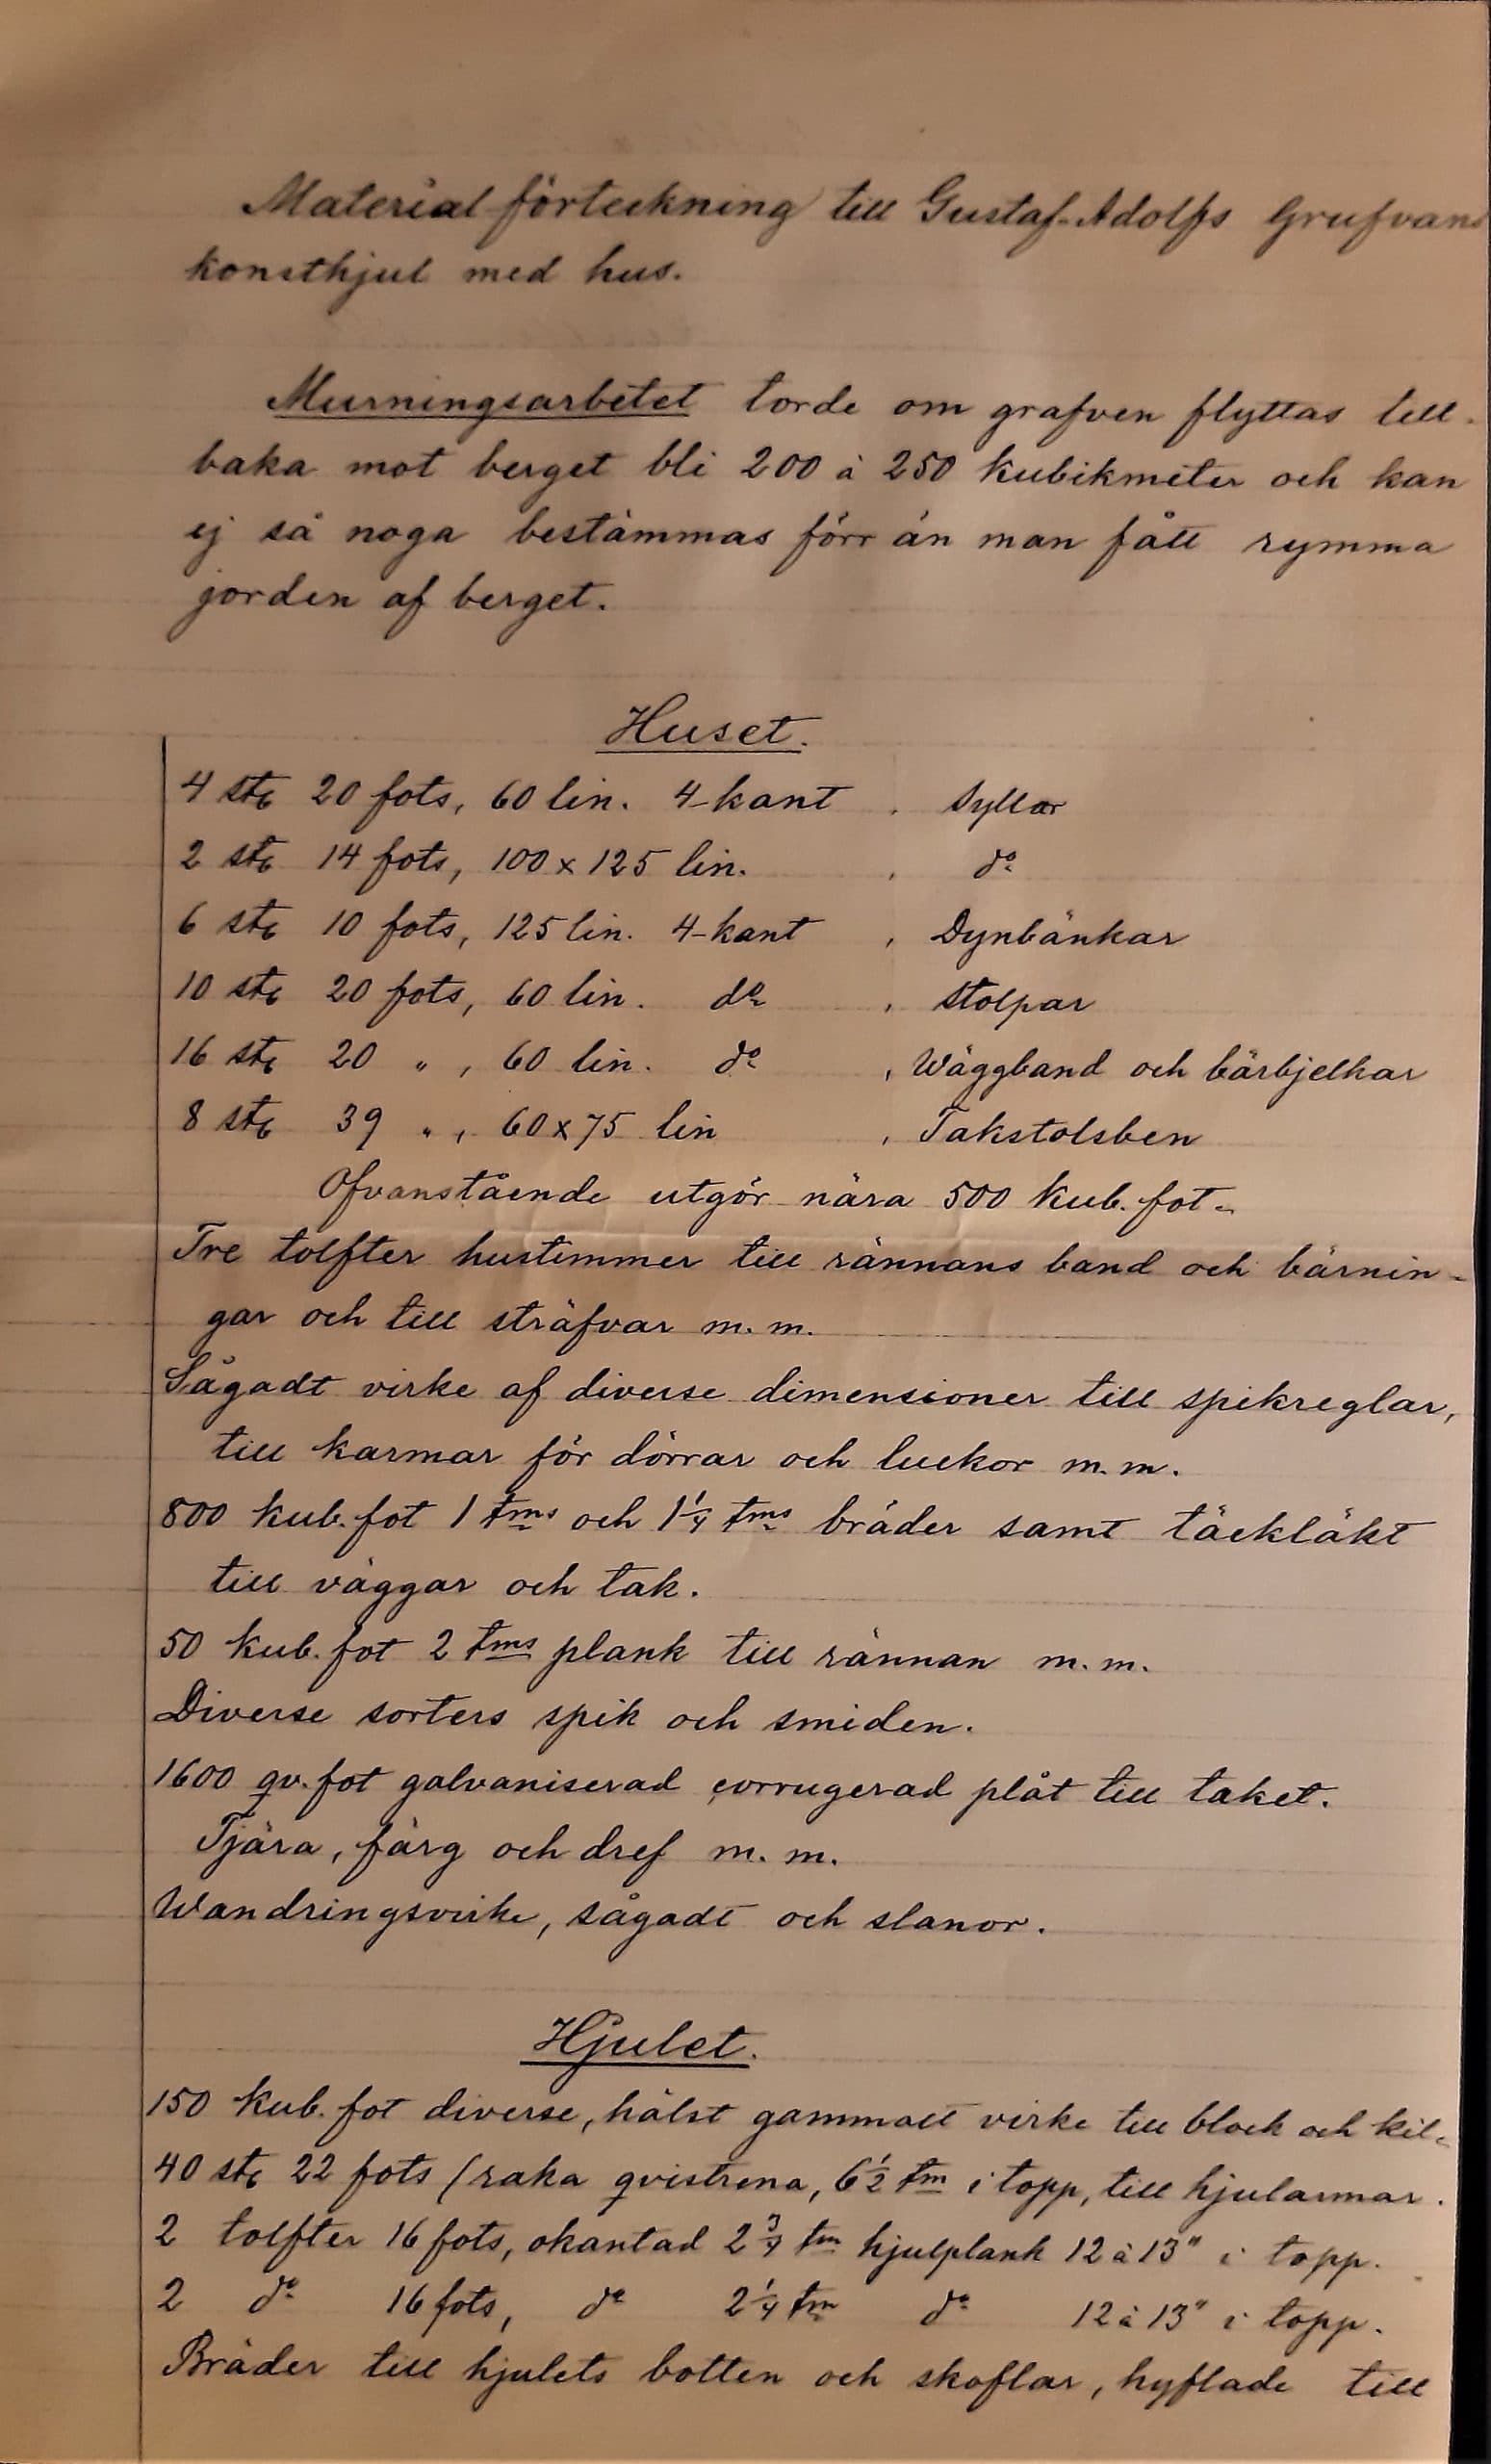 Material förteckning till Gustaf-Adolfs Grufvans
konsthjul med hus.
Murningsarbetet torde om grafven flyttas till-
baka mot berget bli 200 à 250 kubikmeter och kan
ej så noga bestämmas förr än man fått rymma
jorden af berget.
Huset.
4 stc 20 fots, 60 lin. 4-kant , Syllar
2 stc 14 fots, 100 x 125 lin. , do
6 stc 10 fots, 125 lin. 4-kant , Dynbänkar
10 stc 20 fots, 60 lin. do , Stolpar
16 stc 20 " , 60 lin. do , Wäggband och bärbjelkar
8 stc 39 " , 60 x 75 lin , Takstolsben
Ofvanstående utgör nära 500 kub. fot.
Tre tolfter hustimmer till rännans band och bärnin-
gar och till sträfvar m. m.
Sågadt virke af diverse dimensioner till spikreglar,
till karmar för dörrar och luckor m. m.
800 kub. fot 1 tms och 1 1/4 tms bräder samt täckläkt
till väggar och tak.
50 kub. fot 2 tms plank till rännan m. m.
Diverse sorters spik och smiden.
1600 qv. fot galvaniserad corrugerad plåt till taket.
Tjära, färg och dref m. m.
Wandringsvirke, sågadt och slanor.
Hjulet.
150 kub. fot diverse, hälst gammalt virke till block och kil-
40 stc 22 fots (raka qvistrena, 6 1/2 tm i topp, till hjularmar.
2 tolfter 16 fots, okantad 2 3/4 tm hjulplank 12 à 13" i topp.
2 do 16 fots, do 2 1/4 tm do 12 à 13" i topp.
Bräder till hjulets botten och skoflar, hyflade till